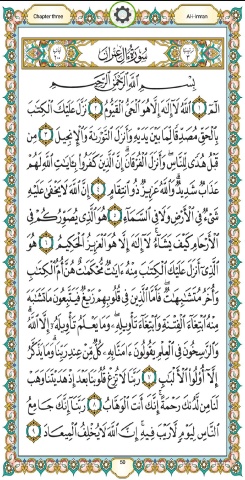 Chapter three
Al-i-Imran
سُورَةُ آلِ عِمْرَانَ
بِسْمِ اللَّهِ الرَّحْمَٰنِ الرَّحِيمِ
الٓمٓ ١ اللَّهُ لَا إِلَٰهَ إِلَّا هُوَ الْحَيُّ الْقَيُّومُ ٢ نَزَّلَ عَلَيْكَ الْكِتَٰبَ
بِالْحَقِّ مُصَدِّقًا لِّمَا بَيْنَ يَدَيْهِ وَأَنزَلَ التَّوْرَىٰةَ وَالْإِنجِيلَ ٣ مِن
قَبْلُ هُدًى لِّلنَّاسِ وَأَنزَلَ الْفُرْقَانَ إِنَّ الَّذِينَ كَفَرُوا بِـَٔايَٰتِ اللَّهِ لَهُمْ
عَذَابٌ شَدِيدٌ وَاللَّهُ عَزِيزٌ ذُو انتِقَامٍ ٤ إِنَّ اللَّهَ لَا يَخْفَىٰ عَلَيْهِ
شَىْءٌ فِي الْأَرْضِ وَلَا فِي السَّمَآءِ ٥ هُوَ الَّذِي يُصَوِّرُكُمْ فِي
الْأَرْحَامِ كَيْفَ يَشَآءُ لَا إِلَٰهَ إِلَّا هُوَ الْعَزِيزُ الْحَكِيمُ ٦ هُوَ
الَّذِي أَنزَلَ عَلَيْكَ الْكِتَٰبَ مِنْهُ ءَايَٰتٌ مُّحْكَمَٰتٌ هُنَّ أُمُّ الْكِتَٰبِ
وَأُخَرُ مُتَشَٰبِهَٰتٌ فَأَمَّا الَّذِينَ فِي قُلُوبِهِمْ زَيْغٌ فَيَتَّبِعُونَ مَا تَشَٰبَهَ
مِنْهُ ابْتِغَآءَ الْفِتْنَةِ وَابْتِغَآءَ تَأْوِيلِهِ وَمَا يَعْلَمُ تَأْوِيلَهُ إِلَّا اللَّهُ
وَالرَّٰسِخُونَ فِي الْعِلْمِ يَقُولُونَ ءَامَنَّا بِهِ كُلٌّ مِّنْ عِندِ رَبِّنَا وَمَا يَذَّكَّرُ
إِلَّا أُولُوا الْأَلْبَٰبِ ٧ رَبَّنَا لَا تُزِغْ قُلُوبَنَا بَعْدَ إِذْ هَدَيْتَنَا وَهَبْ
لَنَا مِن لَّدُنكَ رَحْمَةً إِنَّكَ أَنتَ الْوَهَّابُ ٨ رَبَّنَا إِنَّكَ جَامِعُ
النَّاسِ لِيَوْمٍ لَّا رَيْبَ فِيهِ إِنَّ اللَّهَ لَا يُخْلِفُ الْمِيعَادَ ٩
50